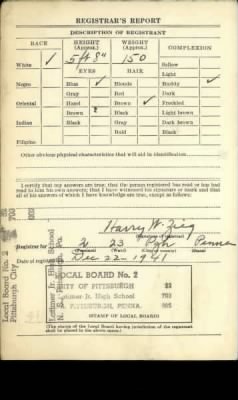 REGISTRAR'S REPORT
DESCRIPTION OF REGISTRANT
RACE HEIGHT (Approx.) WEIGHT (Approx.) COMPLEXION
White ✓ 5 ft 8" 150 Sallow
EYES HAIR Light
Negro Blue ✓ Blonde Ruddy ✓
Gray Red Dark
Oriental Hazel Brown ✓ Freckled
Brown Black Light brown
Indian Black Gray Dark brown
Bald Black
Filipino
Other obvious physical characteristics that will aid in identification
I certify that my answers are true; that the person registered has read or has had
read to him his own answers; that I have witnessed his signature or mark and that
all of his answers of which I have knowledge are true, except as follows:
Harry W. Zieg
Registrar for 2 23 Pgh Penna
Date of registration Dec 22 - 1941
LOCAL BOARD No. 2
CITY OF PITTSBURGH
Latimer Jr. High School
N.S. PITTSBURGH, PENNA.
STAMP OF LOCAL BOARD
(The stamp of the Local Board having jurisdiction of the registrant
shall be placed in the above space.)
Local Board No. 2
Pittsburgh City
Latimer Jr. High School
N. S. Pittsburgh, Pa.